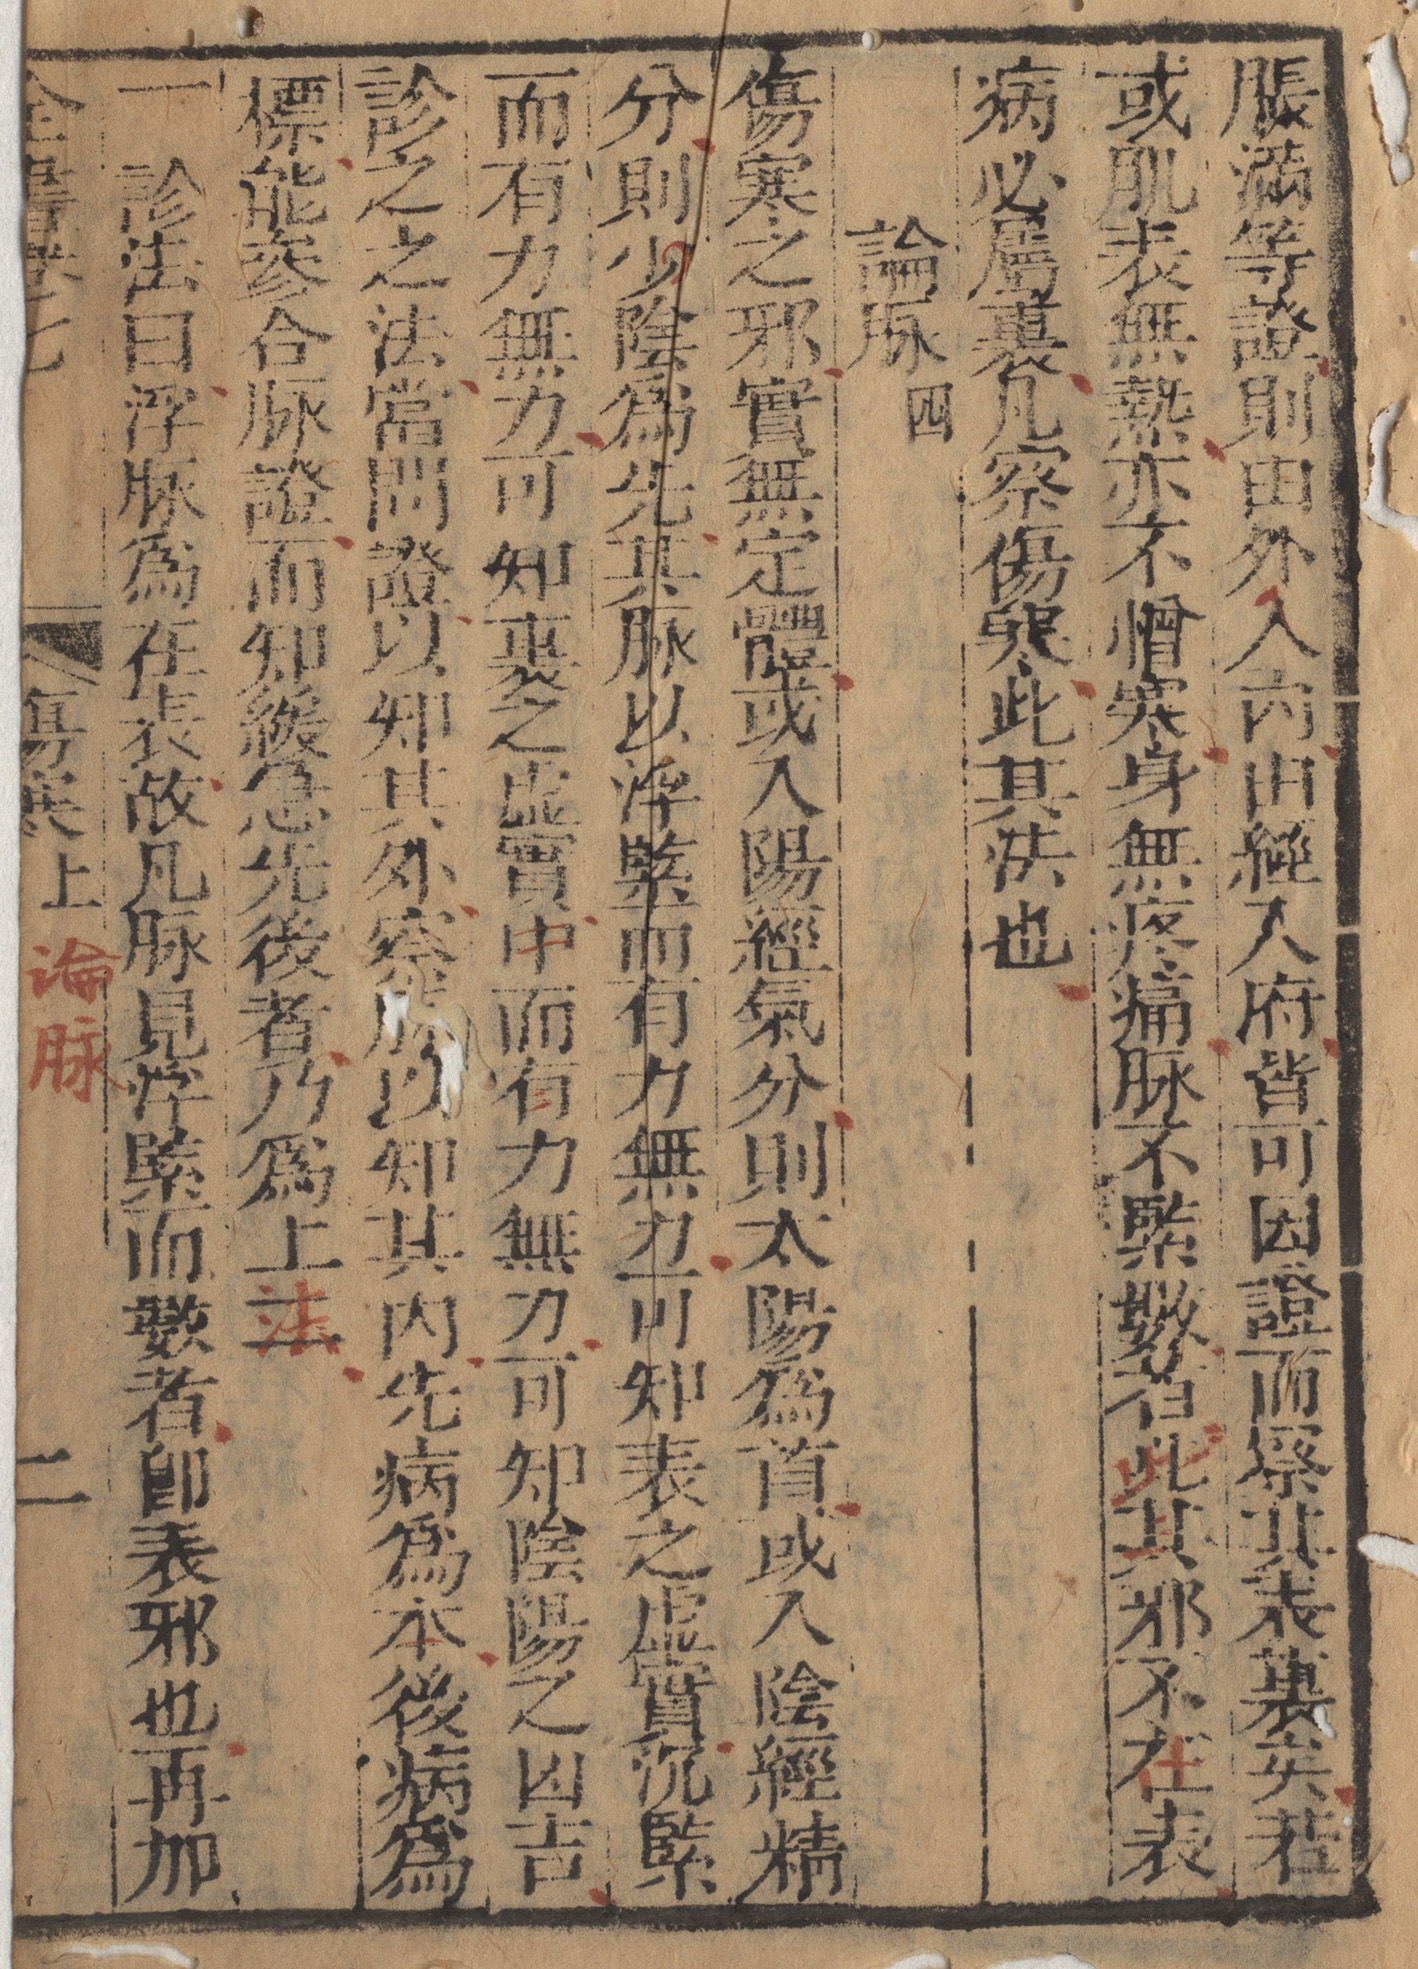 脹滿等證則由外入内由經入府皆可因證而察其表裏矣若
或肌表無熱亦不憎寒身無疼痛脉不緊數者此其邪不在表
病必屬裏凡察傷寒此其法也
論脉四
傷寒之邪實無定體或入陽經氣分則太陽爲首或入陰經精
分則少陰爲先其脉以浮緊而有力無力可知表之虛實沉緊
而有力無力可知裏之虛實中而有力無力可知陰陽之凶吉
診之之法當問證以知其外察脉以知其内先病爲本後病爲
標能參合脉證而知緩急先後者乃爲上工
法
一診法曰浮脉爲在表故凡脉見浮緊而數者卽表邪也再加
全書卷七
傷寒上
論脉
二